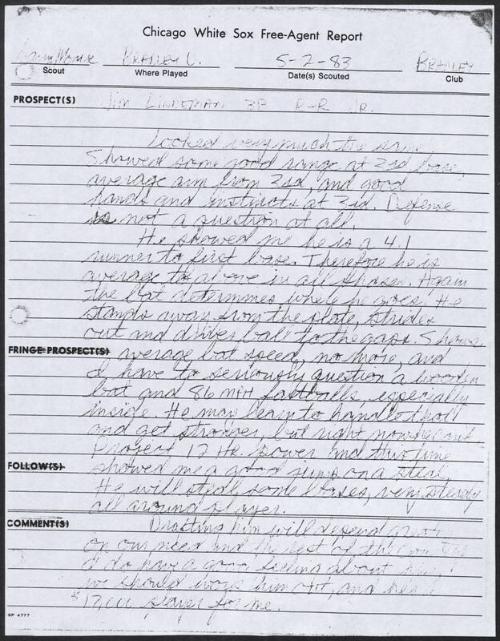 Chicago White Sox Free-Agent Report
Bradley U. 5-2-83 Bradley
Scout Where Played Date(s) Scouted Club
PROSPECT(S) Jim Lindeman 3B R-R Jr.
Looked very much the same.
Showed some good range at 3rd base,
average arm from 3rd, and good
hands and instincts at 3rd. Defense
is not a question at all.
He showed me he is a 4.1
runner to first base. Therefore he is
average to above in all phases. Again
the bat determines where he goes. He
stands away from the plate, strides
out and drives ball to the gaps. Shows
FRINGE PROSPECT(S) average bat speed, no more, and
I have to seriously question a wooden
bat and 86 MPH fastballs, especially
inside. He may learn to handle that
and get stronger, but right now
project 12 HR power and this time
FOLLOW(S) showed me a good jump on a steal.
He will steal some bases, very steady
all around player.
COMMENT(S) Drafting him will depend
on our need and the rest of the
I do have a good feeling about him,
we should work him out, and he's a
player for me.